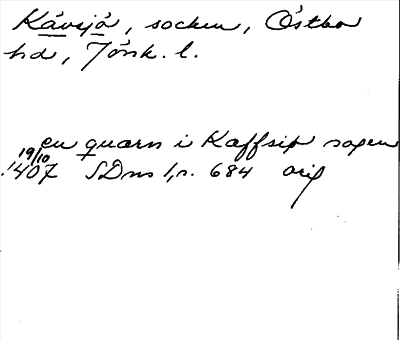 Kävsjö, socken, Östbo
hd, Jönk. l.
en quarn i Kaffsiø sogen
19/10
1407 SDns 1, s. 684 orig